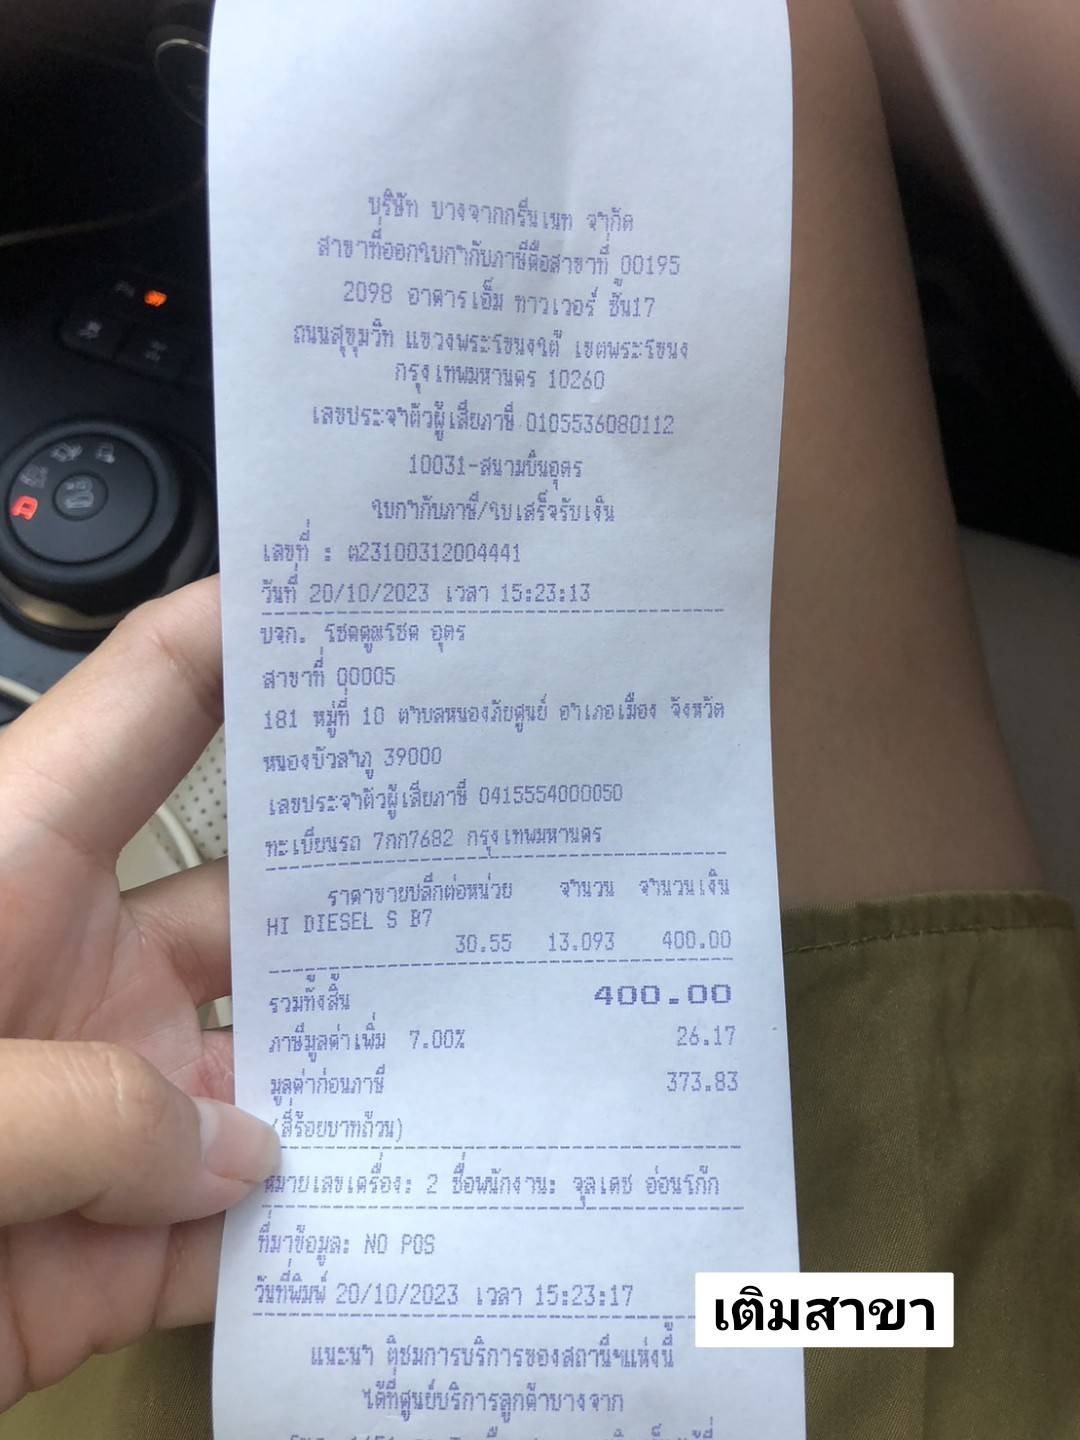 บริษัท บางจากกรีนเนท จำกัด
สาขาที่ออกใบกำกับภาษีคือสาขาที่ 00195
2098 อาคารเอ็ม ทาวเวอร์ ชั้น17
ถนนสุขุมวิท แขวงพระโขนงใต้ เขตพระโขนง
กรุงเทพมหานคร 10260
เลขประจำตัวผู้เสียภาษี 0105536080112
10031-สนามบินอุดร
ใบกำกับภาษี/ใบเสร็จรับเงิน
เลขที่ : ต23100312004441
วันที่ 20/10/2023 เวลา 15:23:13
บจก. โชคคูณโชค อุดร
สาขาที่ 00005
181 หมู่ที่ 10 ตำบลหนองภัยศูนย์ อำเภอเมือง จังหวัด
หนองบัวลำภู 39000
เลขประจำตัวผู้เสียภาษี 0415554000050
ทะเบียนรถ 7กก7682 กรุงเทพมหานคร
ราคาขายปลีกต่อหน่วย จำนวน จำนวนเงิน
HI DIESEL S B7
30.55 13.093 400.00
รวมทั้งสิ้น 400.00
ภาษีมูลค่าเพิ่ม 7.00% 26.17
มูลค่าก่อนภาษี 373.83
(สี่ร้อยบาทถ้วน)
หมายเลขเครื่อง: 2 ชื่อพนักงาน: จุลเดช อ่อนโก้ก
ที่มาข้อมูล: NO POS
วันที่พิมพ์ 20/10/2023 เวลา 15:23:17
เติมสาขา
แนะนำ ติชมการบริการของสถานีฯแห่งนี้
ได้ที่ศูนย์บริการลูกค้าบางจาก